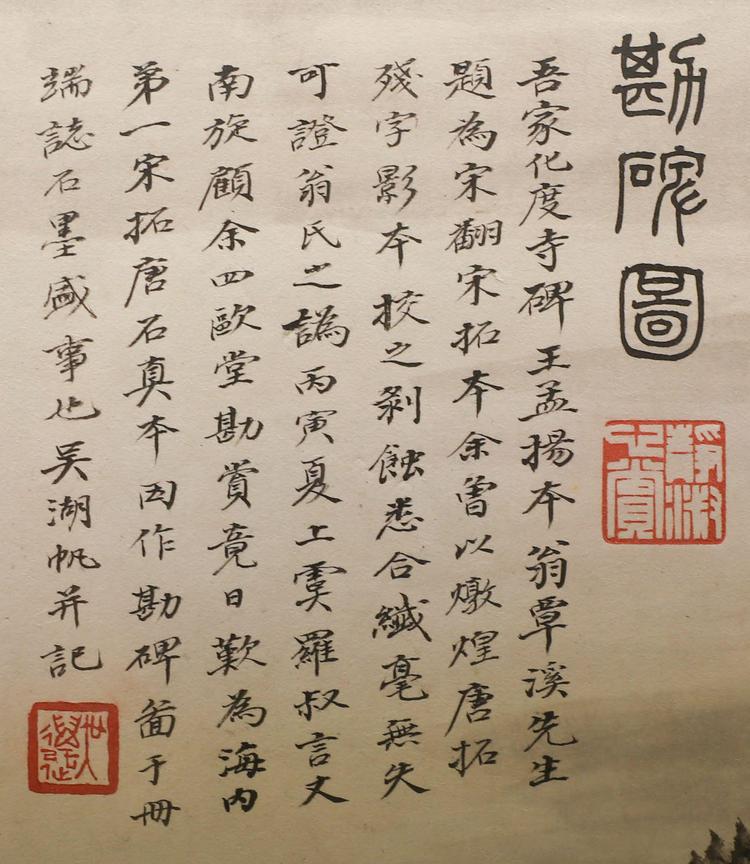 勘碑圖
吾家化度寺碑王孟揚本翁覃溪先生
題為宋翻宋拓本余曾以燉煌唐拓
殘字影本挍之剝蝕悉合纎毫無失
可證翁氏之譌丙寅夏上虞羅叔言丈
南旋顧余四歐堂勘賞竟日歎為海内
第一宋拓唐石真本因作勘碑啚于冊
端誌石墨盛事也吳湖帆并記